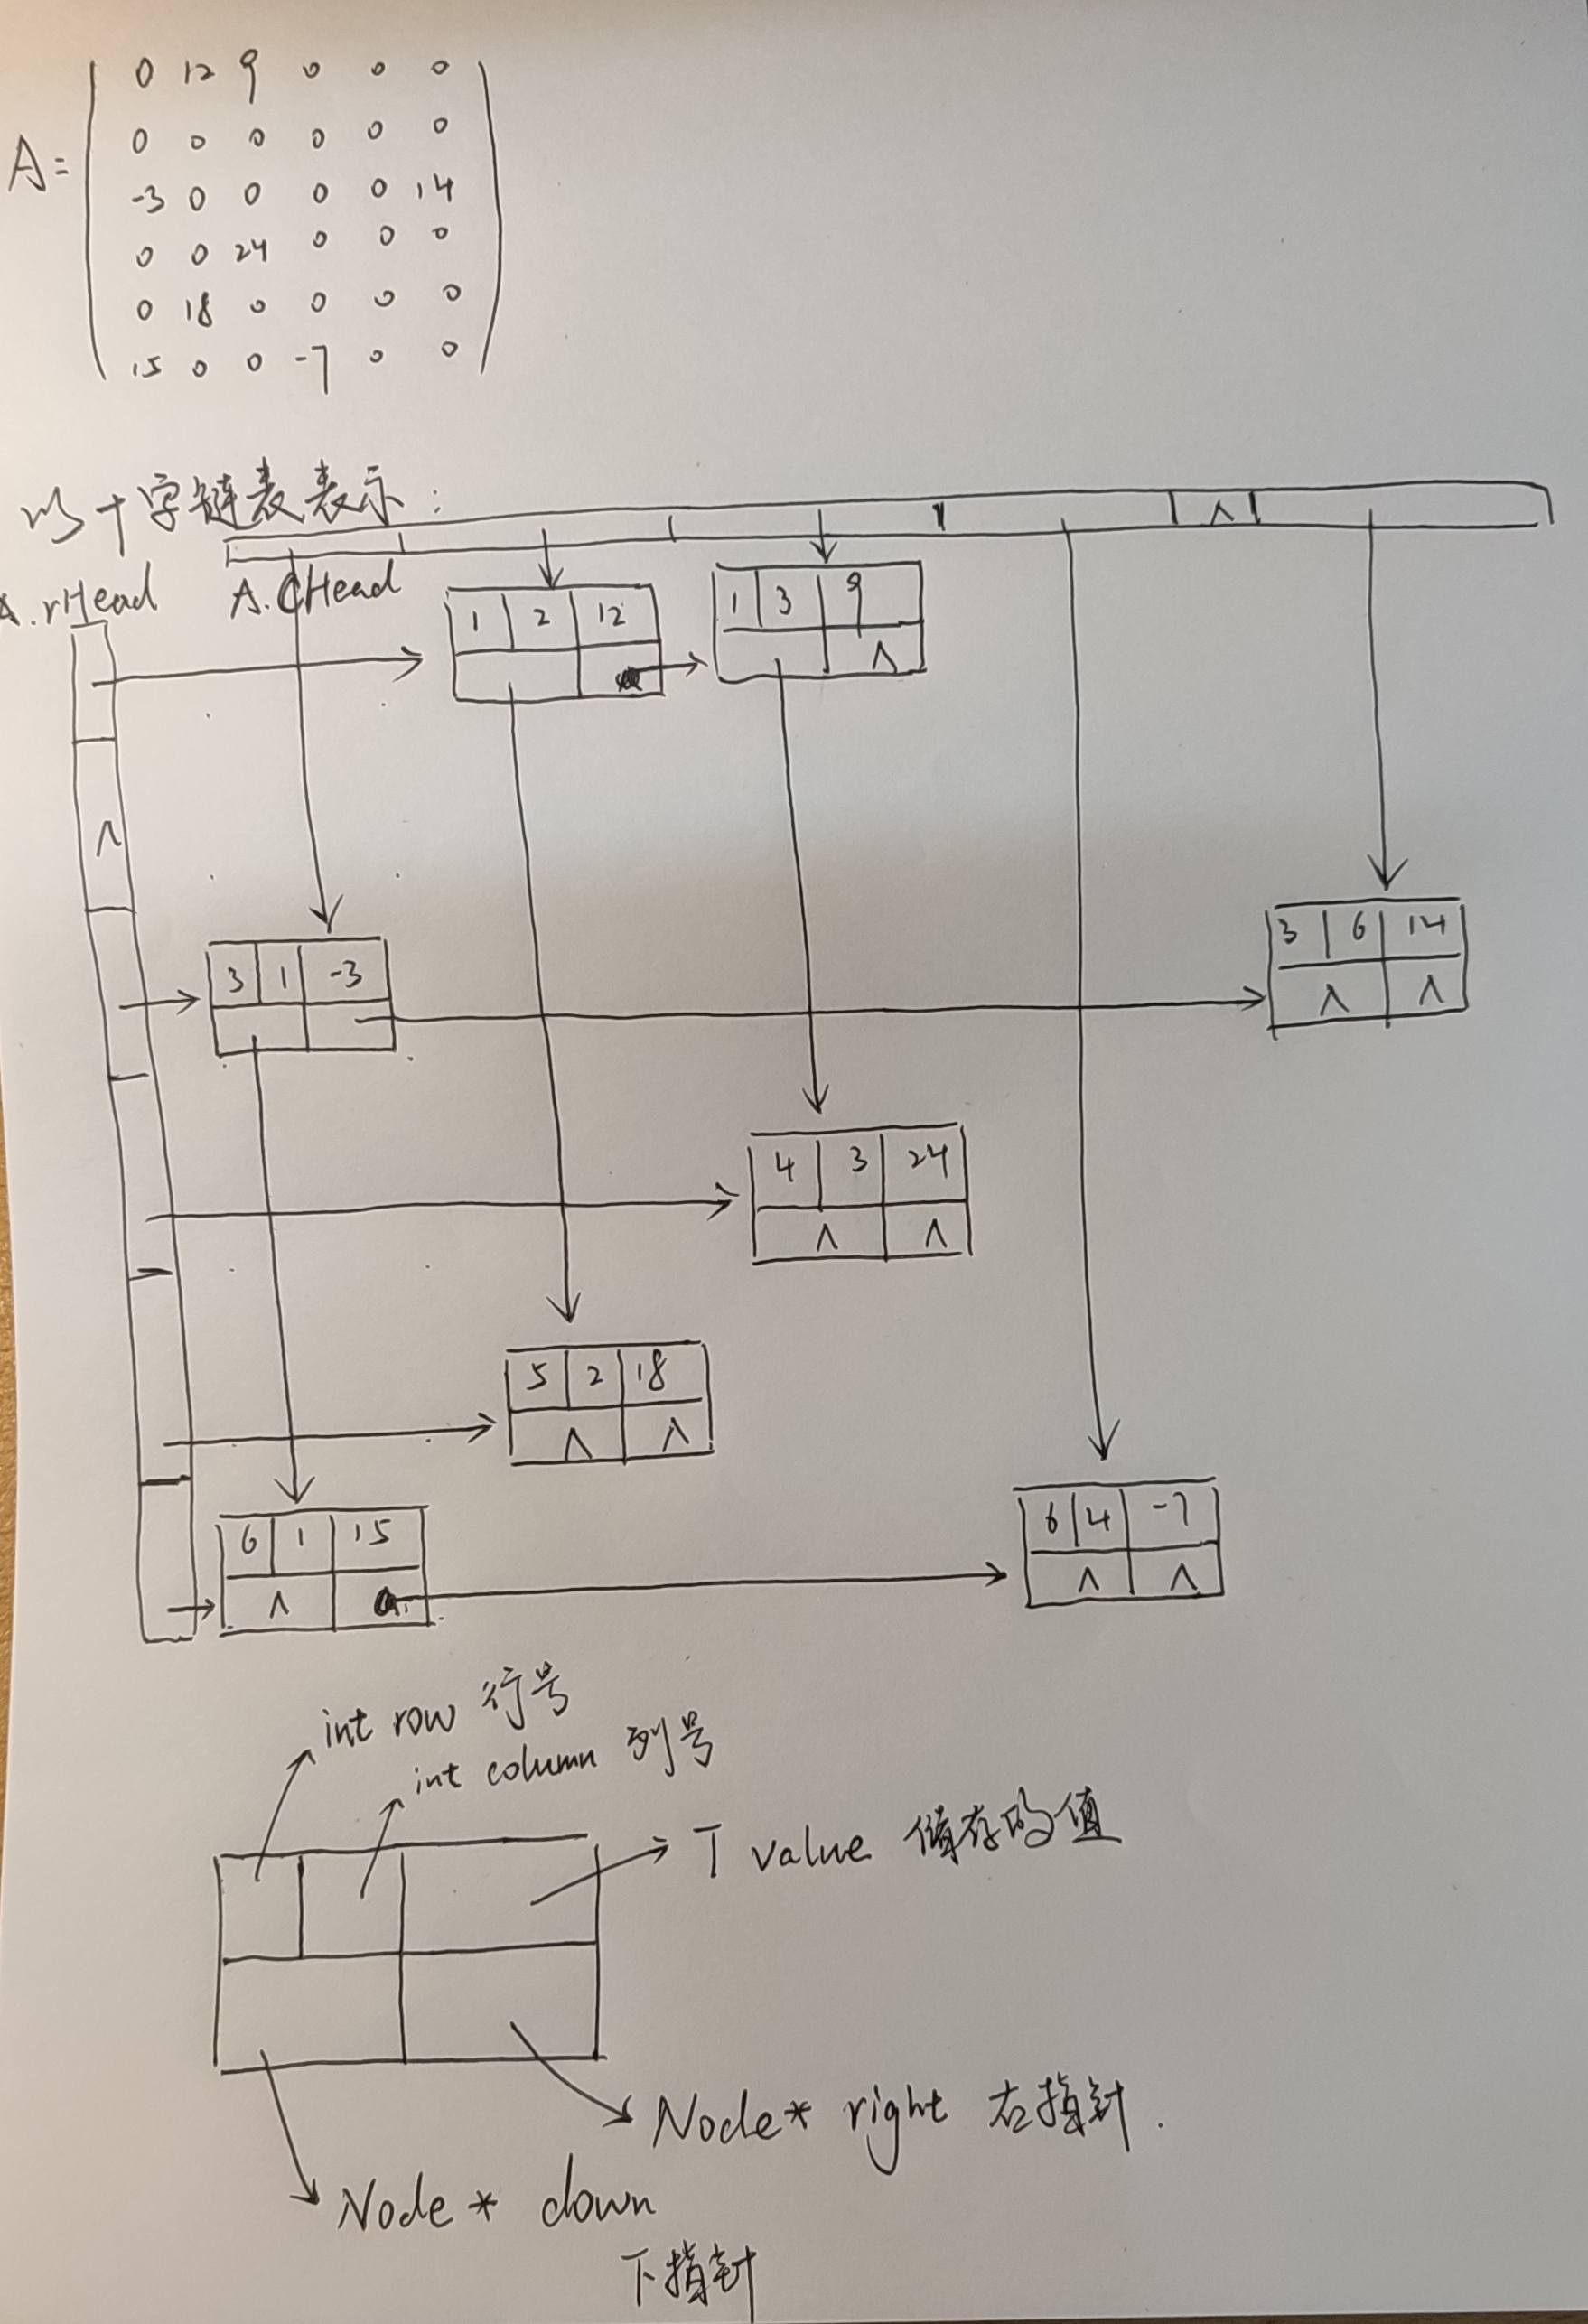 A=
0 12 9 0 0 0
0 0 0 0 0 0
-3 0 0 0 0 14
0 0 24 0 0 0
0 18 0 0 0 0
15 0 0 -7 0 0
以十字链表表示：
∧
A.rHead A.CHead
1 2 12
1 3 9
∧
∧
3 1 -3
3 6 14
∧ ∧
4 3 24
∧ ∧
5 2 18
∧ ∧
6 1 15
∧
6 4 -7
∧ ∧
int row 行号
int column 列号
T value 储存的值
Node* right 右指针.
Node* down
下指针